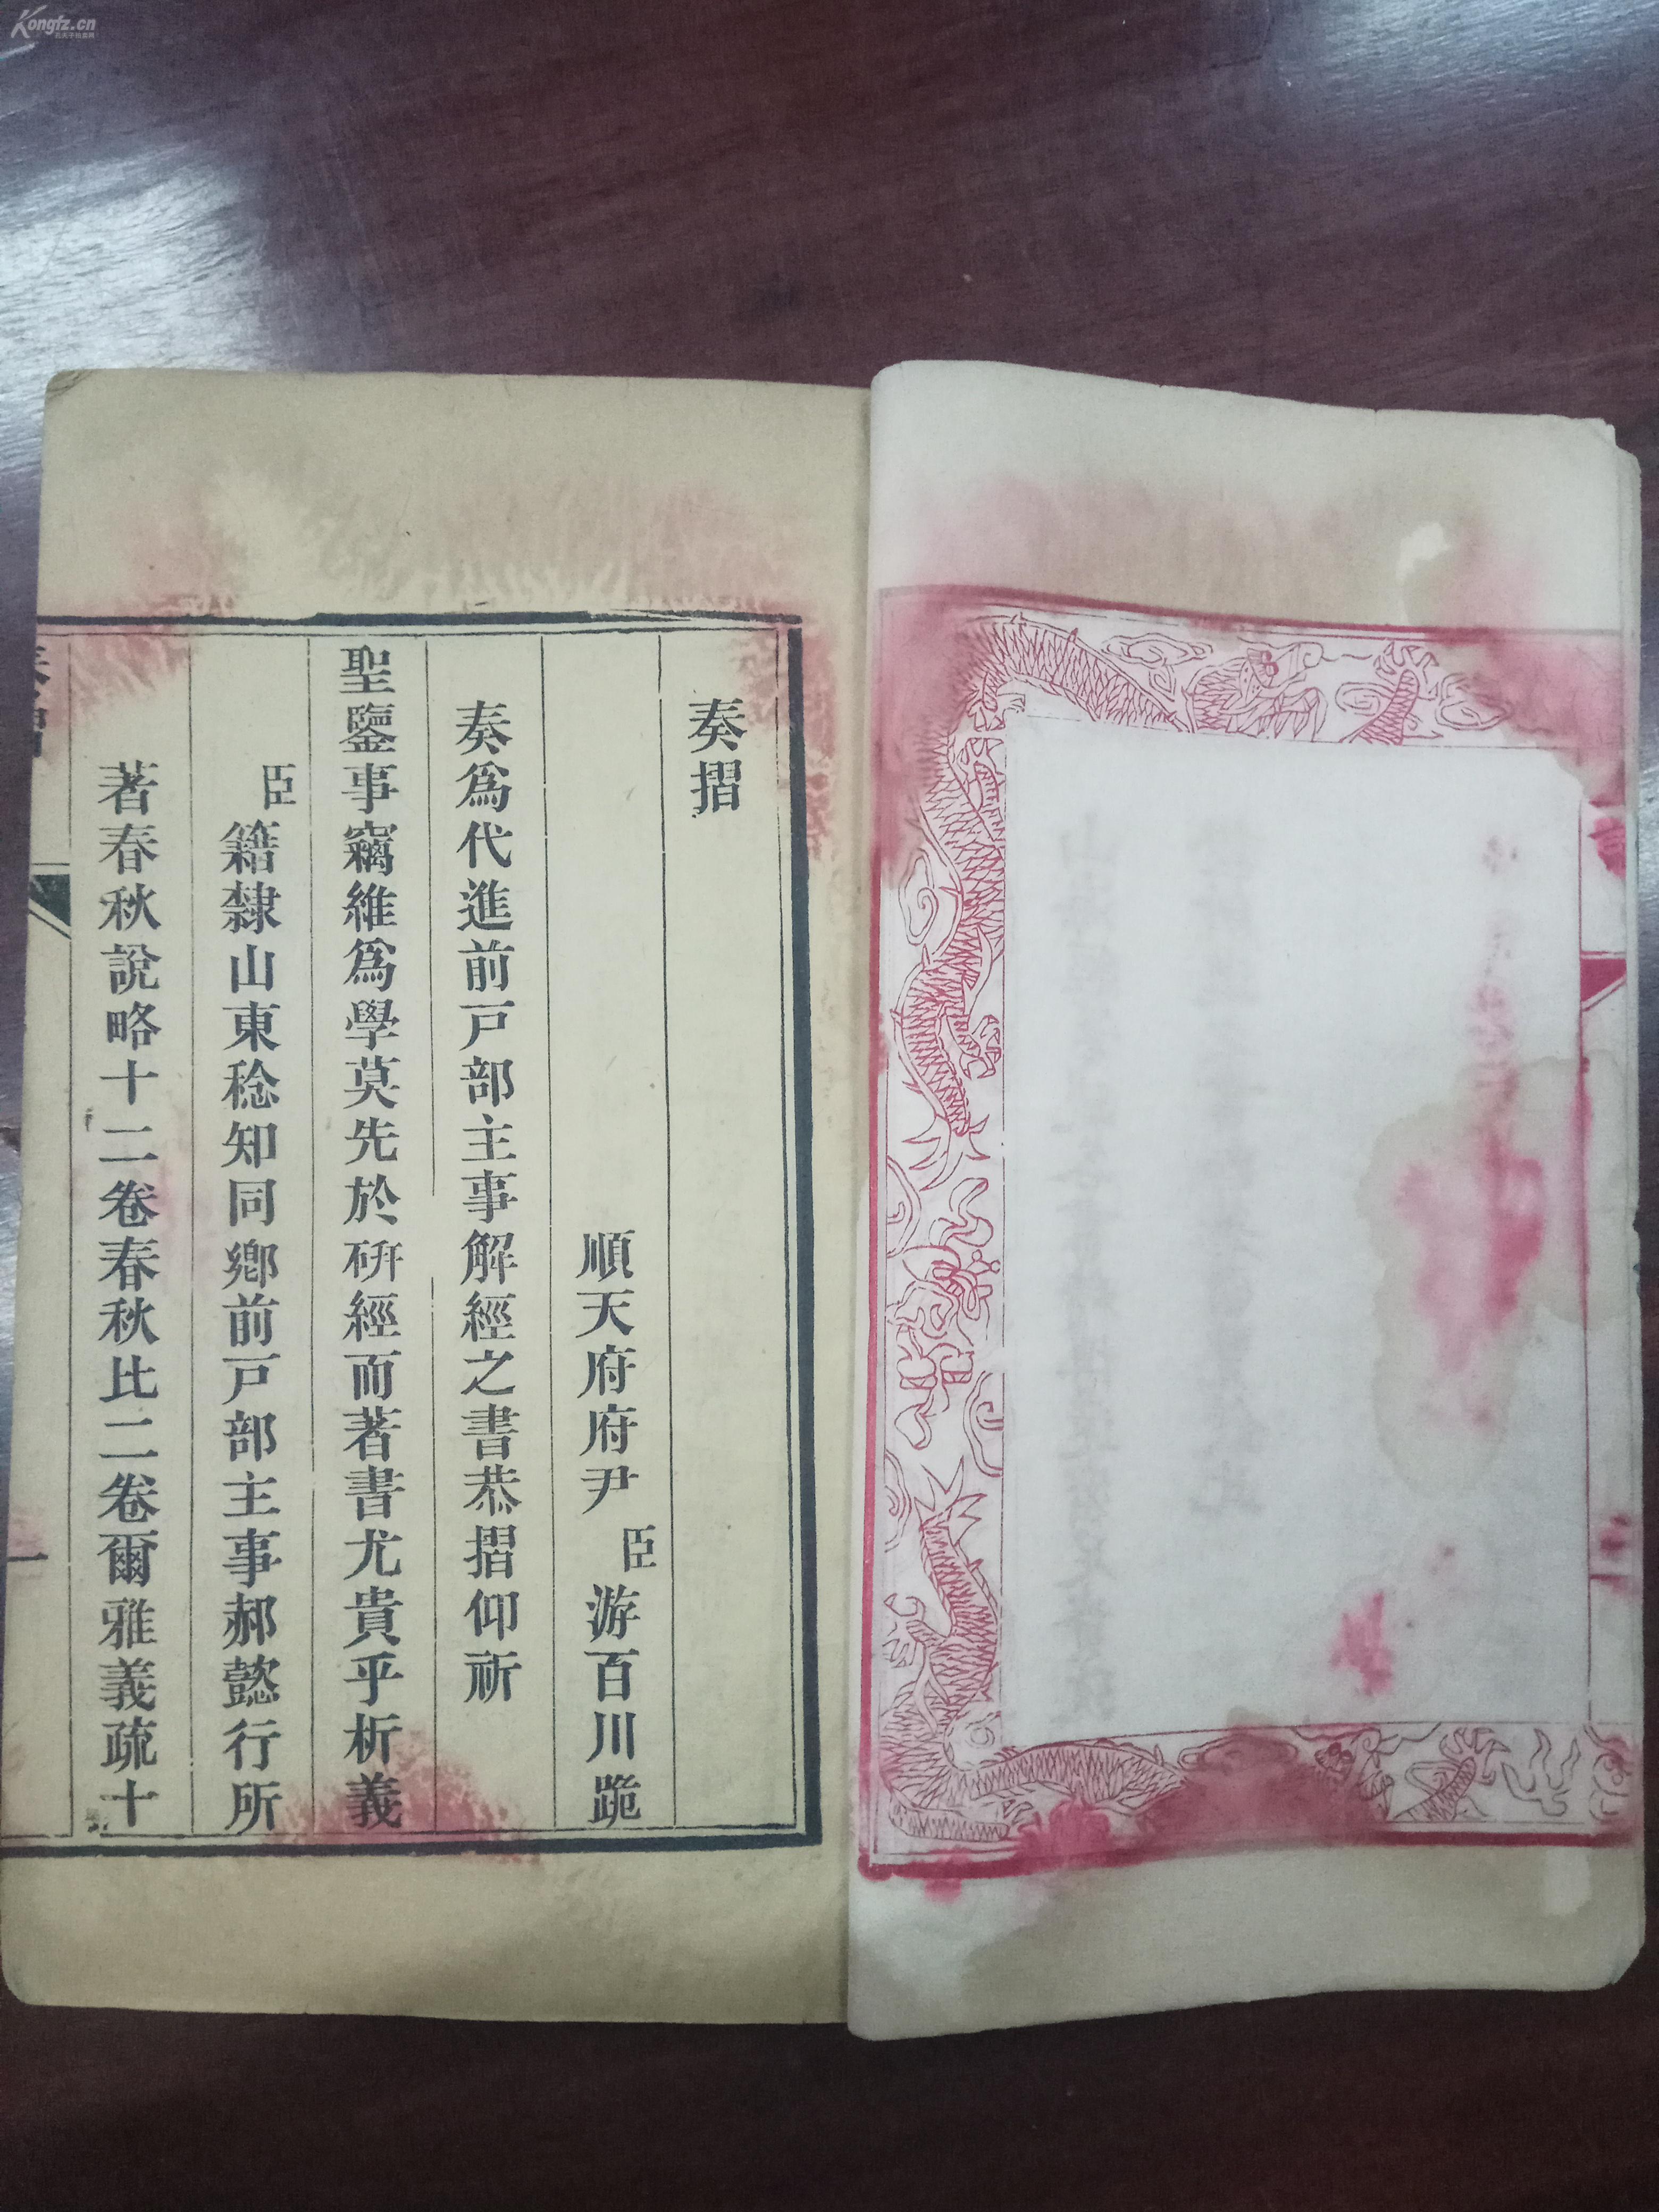 Kongfz.cn
奏摺
順天府府尹臣游百川跪
奏爲代進前戸部主事解經之書恭摺仰祈
聖鑒事竊維爲學莫先於硏經而著書尤貴乎析義
臣籍隸山東稔知同鄉前戸部主事郝懿行所
著春秋說略十二卷春秋比二卷爾雅義疏十